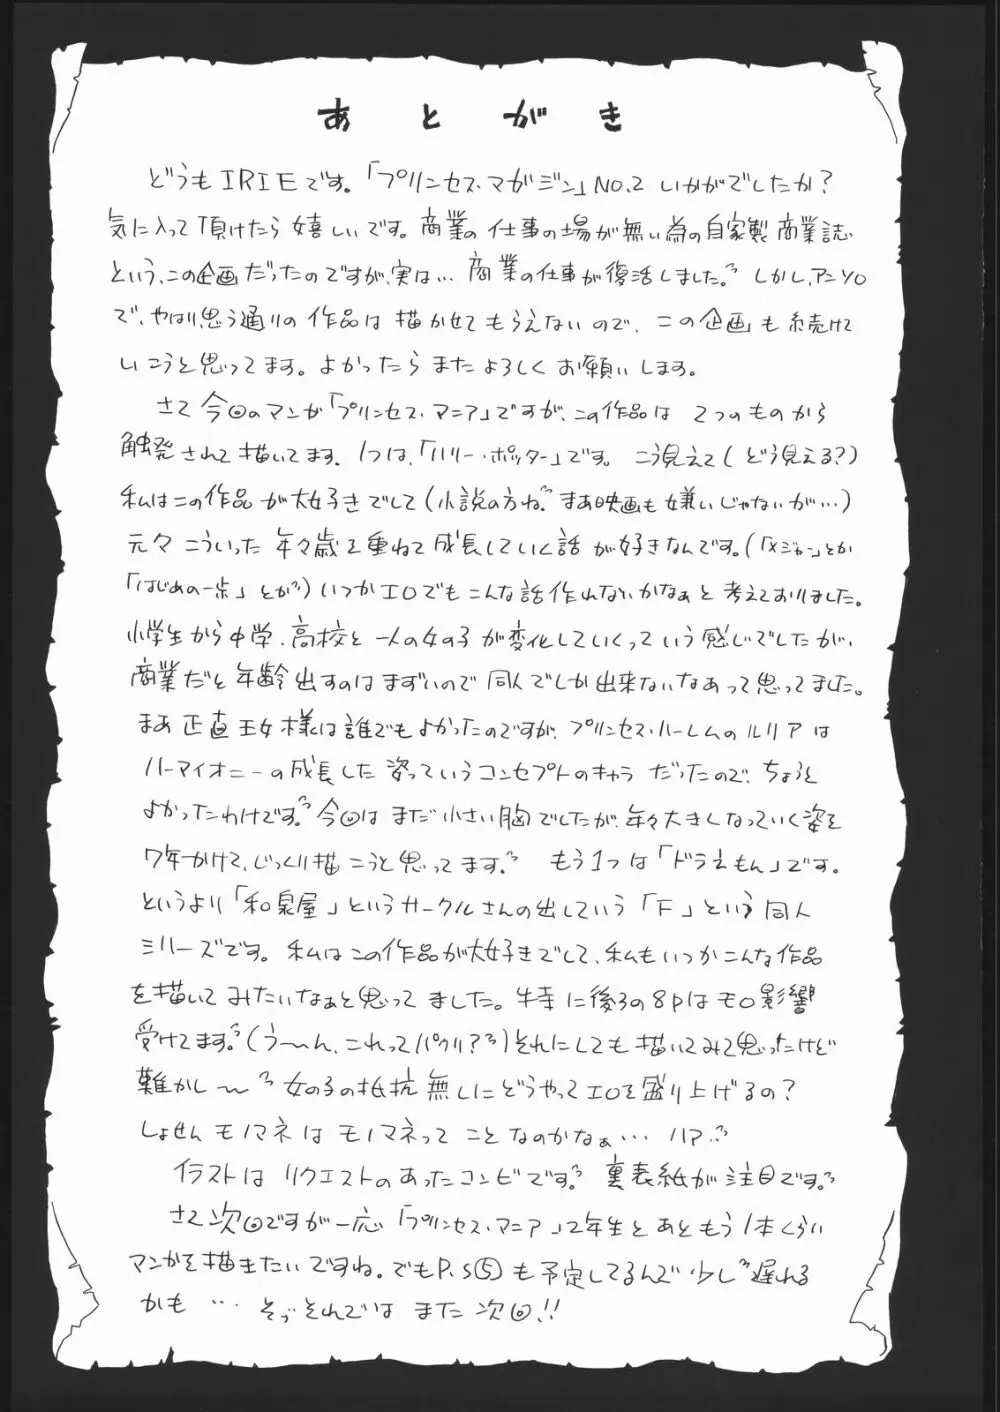 あとがき
どうもIRIEです。「プリンセス・マガジン」NO.2 いかがでしたか?
気に入って頂けたら嬉しいです。商業の仕事の場が無い為の自家製商業誌
という、この企画だったのですが、実は… 商業の仕事が復活しました。しかし、アンソロ
で、やはり思う通りの作品は描かせてもらえないので、この企画も続けて
いこうと思ってます。よかったらまたよろしくお願いします。
さて今回のマンガ「プリンセス・マニア」ですが、この作品は2つのものから
触発されて描いてます。1つは、「ハリー・ポッター」です。こう見えて(どう見える?)
私はこの作品が大好きでして(小説の方ね。まあ映画も嫌いじゃないが…)
元々こういった年々歳を重ねて成長していく話が好きなんです。(「メジャー」とか
「はじめの一歩」とか)いつかエロでもこんな話作れないかなぁと考えておりました。
小学生から中学、高校と一人の女の子が変化していくっていう感じでしたが、
商業だと年齢出すのはまずいので同人でしか出来ないなあって思ってました。
まあ正直王女様は誰でもよかったのですが、プリンセス・ハーレムのルリアは
ハーマイオニーの成長した姿っていうコンセプトのキャラだったので、ちょうど
よかったわけです。今回はまだ小さい胸でしたが、年々大きくなっていく姿を
7年かけて、じっくり描こうと思ってます。もう1つは「ドラえもん」です。
というより「和泉屋」というサークルさんの出している「F」という同人
シリーズです。私はこの作品が大好きでして、私もいつかこんな作品
を描いてみたいなぁと思ってました。特に後ろの8Pはモロ影響
受けてます。(う〜ん、これってパクリ?)それにしても描いてみて思ったけど
難かし〜 女の子の抵抗無しにどうやってエロを盛り上げるの?
しょせんモノマネはモノマネってことなのかなぁ… ハァ…
イラストはリクエストのあったコンビです。裏表紙が注目です。
さて次回ですが一応「プリンセス・マニア」2年生とあともう1本くらい
マンガを描きたいですね。でもP.S⑤も予定してるんで少し遅れる
かも… そ、それではまた次回!!